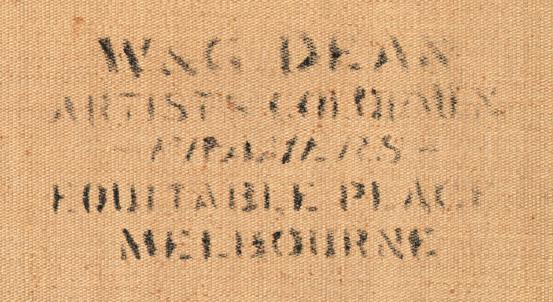 W & G DEAN
ARTISTS COLOURMEN
- FRAMERS -
EQUITABLE PLACE
MELBOURNE